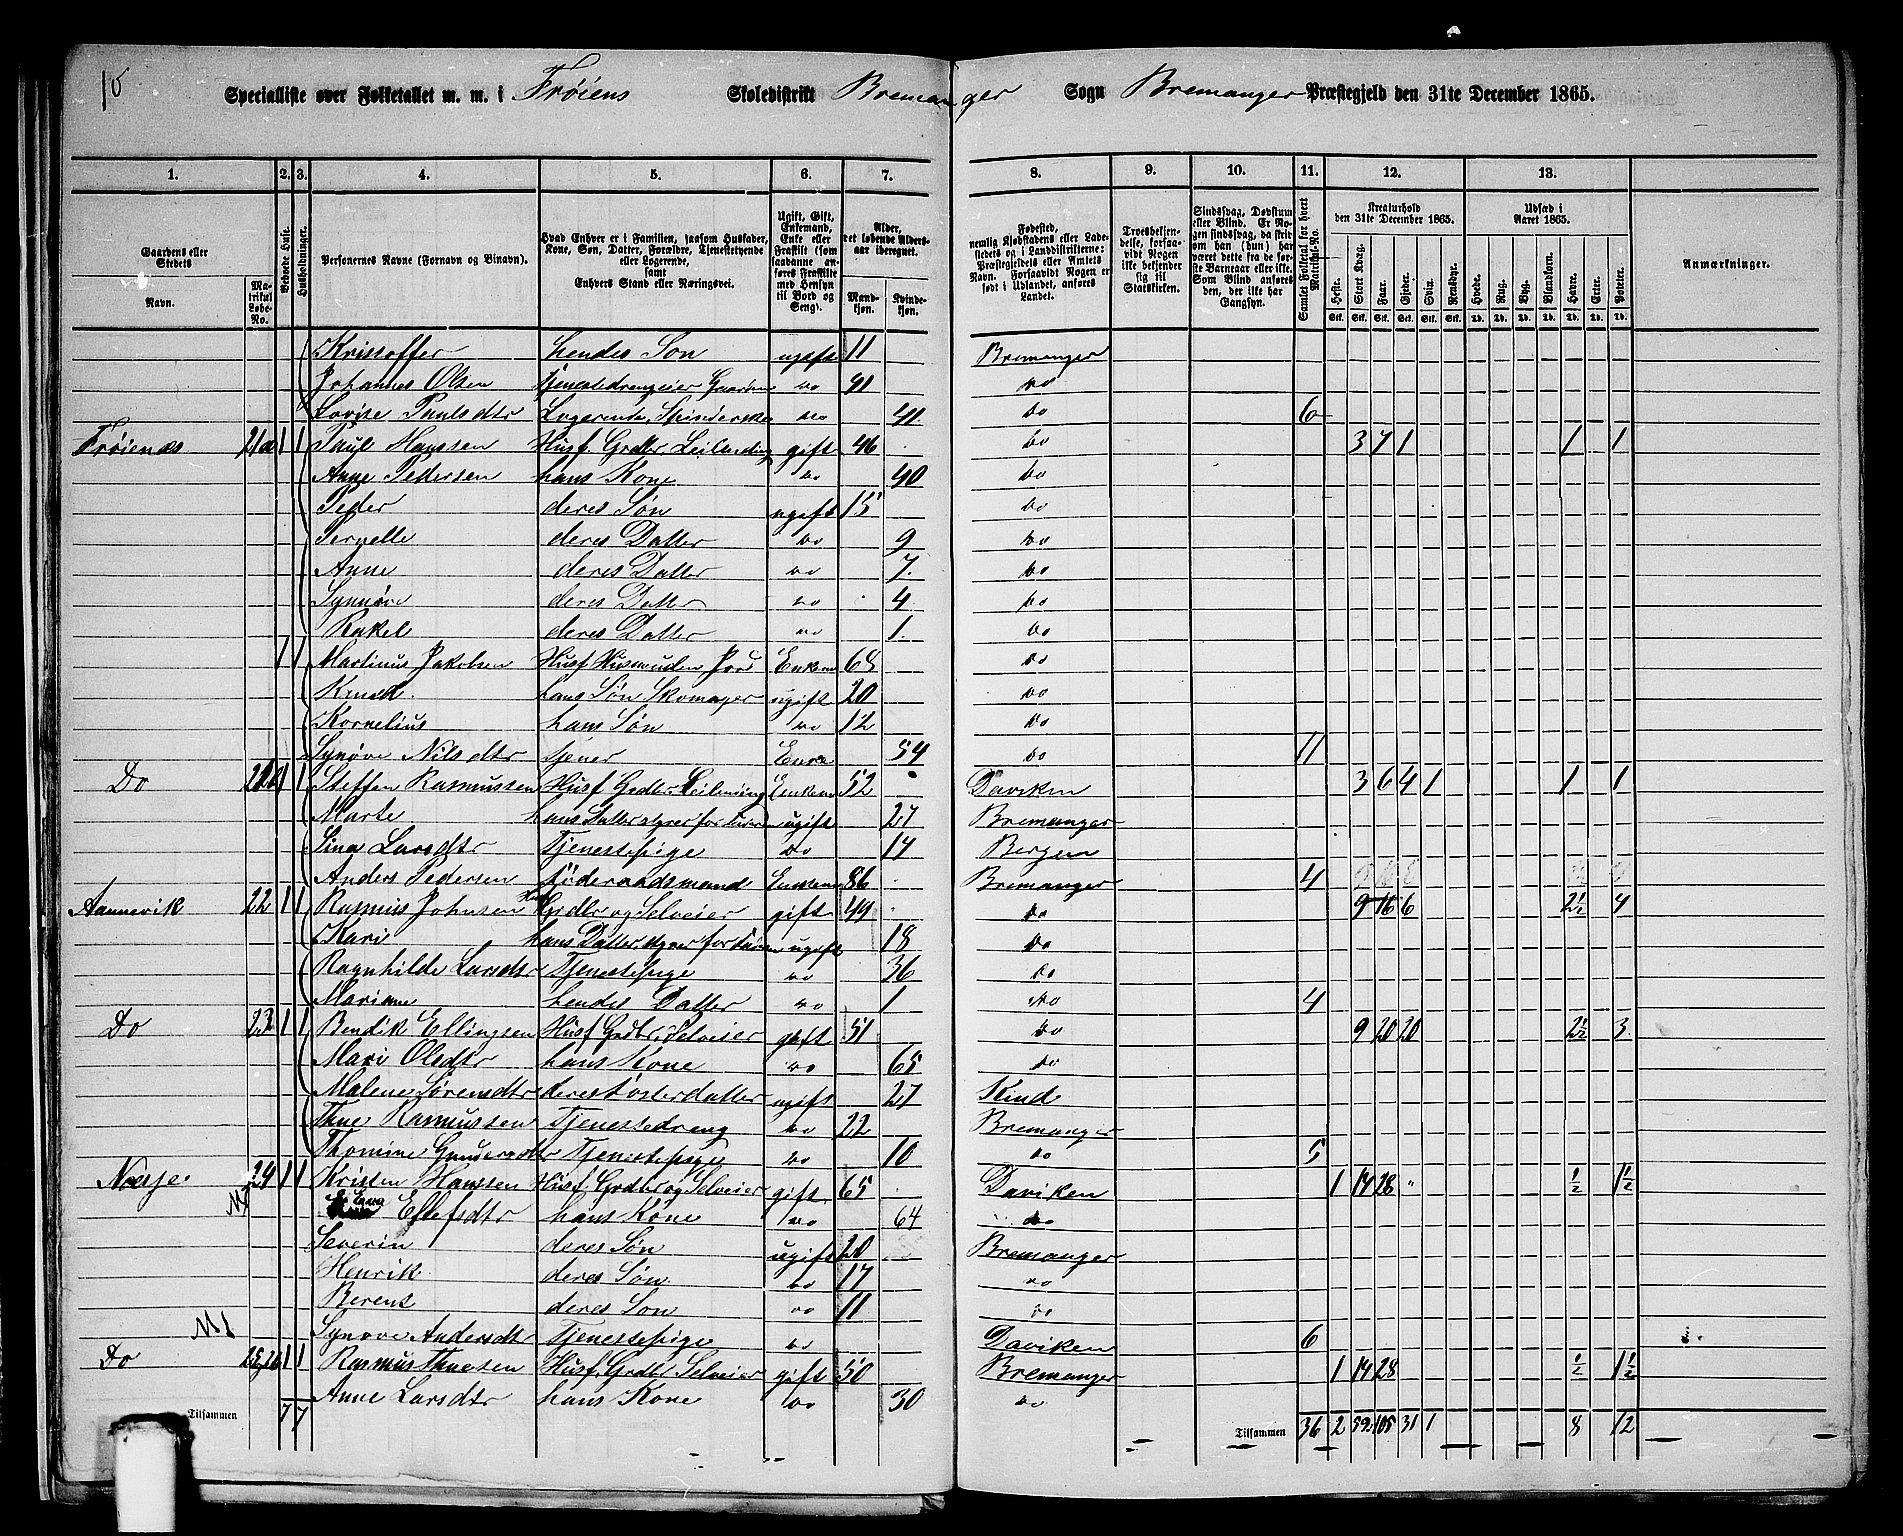 16
Specialliste over Folketallet m. m. i Frøiens Skoledistrikt Bremanger Sogn Bremanger Præstegjeld den 31te December 1865.
1. 2. 3. 4. 5. 6. 7. 8. 9. 10. 11. 12. 13.
Gaardens eller Stedets
Navn.
Matrikul Løbe-No.
Beboede Huse.
Husholdninger.
Personernes Navne (Fornavn og Binavn).
Hvad Enhver er i Familien, saasom Husfader, Kone, Søn, Datter, Forældre, Tjenestetyende eller Logerende, samt Enhvers Stand eller Næringsvei.
Ugift, Gift, Enkemand, Enke eller Fraskilt (som saadanne anføres Fraskilte med Hensyn til Bord og Seng).
Alder, det løbende Alders-aar iberegnet.
Mand-kjøn.
Kvinde-kjøn.
Fødested, nemlig Kjøbstadens eller Ladestedets og i Landdistrikterne: Præstegjeldets eller Amtets Navn. Forsaavidt Nogen er født i Udlandet, anføres Landet.
Troesbekjendelse, forsaavidt Nogen ikke bekjender sig til Statskirken.
Sindssvag, Døvstum eller Blind. Er Nogen sindssvag, da skrives om han (hun) har været dette fra de første Barneaar eller ikke. Som Blind anføres den, der ikke har Gangsyn.
Samlet Folketal for hvert Matrikul-No.
Kreaturhold den 31te December 1865.
Heste. Stort Kvæg. Faar. Gjeder. Svin. Rensdyr.
Udsæd i Aaret 1865.
Hvede. Rug. Byg. Blandkorn. Havre. Erter. Poteter.
Anmærkninger.
Kristoffer hendes Søn ugift 11 Bremanger
Johannes Olsen Tjenestedreng eier Gaarden do 41 do
Lovise Paulsdtr Logerende, Spinderske do 41. do 6
Frøienæs 21a 1 1 Paul Hanssen Husf. Grdbr. Leilending gift 46 do 3 7 1 1 1
Anne Pedersen hans Kone do 40 do
Peder deres Søn ugift 15 do
Pernelle deres Datter do 9 do
Anne deres Datter do 7. do
Synnøve deres Datter do 4 do
Rakel deres Datter do 1. do
1 1 Martinus Jakobsen Husf Husmand uden Jord Enkem 64 do
Knud hans Søn Skomager ugift 20 do
Kornelius hans Søn do 12 do
Synøve Nilsdtr tjener Enke 54 do 11
Do 21b 1 1 Steffen Rasmussen Husf Grdbr. Leilending Enkem 52 Daviken 3 6 4 1 1 1
Marte hans Datter styrer for Faderen ugift 27 Bremanger
Sina Larsdtr Tjenestepige do 14 Bergen
Anders Pedersen føderaadsmand Enkem 86 Bremanger 4
Aannevik 22 1 1 Rasmus Johnsen Husf Grdbr og Selveier gift 49 do 9 16 6 2½ 4
Kari hans Datter styrer for Faderen ugift 18 do
Ragnhilde Larsdtr Tjenestepige do 36 do
Mariane hendes Datter do 1 do 4
Do 23 1 1 Bendik Ellingsen Husf Grdbr. Selveier gift 51 do 9 20 20 2½ 3.
Mari Olsdtr hans Kone do 65 do
Malene Sørensdtr deres fosterdatter ugift 27 Kind
Thue Rasmussen Tjenestedreng do 22 Bremanger
Thomine Gundersdtr Tjenestepige do 10 do 5
Nesje. 24 1 1 Kristen Hanssen Husf. Grdbr og Selveier gift 65 Daviken 1 14 28 ½ 1½
Ellefsdtr hans Kone do 64 do
Severin deres Søn ugift 20 Bremanger
Henrik deres Søn do 17 do
Berent deres Søn do 11 do
Synøve Andersdtr Tjenestepige do Daviken 6
Do 25,26 1 1 Rasmus Thuesen Husf. Grdbr Selveier gift 50 Bremanger 1 14 28 ½ 1½
Anne Larsdtr hans Kone do 30 do
Tilsammen 7 7 Tilsammen 36 2 59 105 31 1 8 12